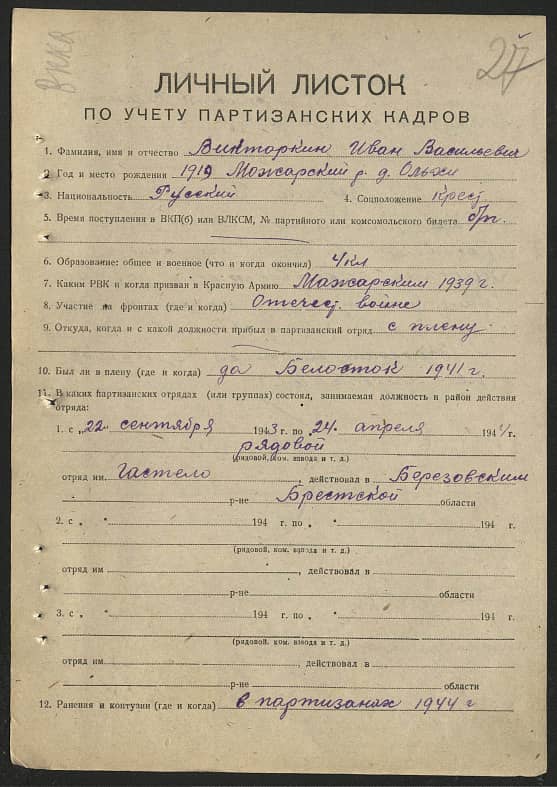 27
ЛИЧНЫЙ ЛИСТОК
ПО УЧЕТУ ПАРТИЗАНСКИХ КАДРОВ
1. Фамилия, имя и отчество Викторкин Иван Васильевич
2. Год и место рождения 1919 Можарский р. д. Ольхи
3. Национальность Русский 4. Соцположение Крест
5. Время поступления в ВКП(б) или ВЛКСМ, № партийного или комсомольского билета б/п.
6. Образование: общее и военное (что и когда окончил) 4кл
7. Каким РВК и когда призван в Красную Армию Мажарским 1939 г.
8. Участие на фронтах (где и когда) Отечест. войне
9. Откуда, когда и с какой должности прибыл в партизанский отряд с плену
10. Был ли в плену (где и когда) да Белосток 1941 г.
11. В каких партизанских отрядах (или группах) состоял, занимаемая должность и район действия
отряда:
1. с „22" сентября 1943 г. по 24 апреля 1944 г.
рядовой
(рядовой, ком. взвода и т. д.)
отряд им. Гастело, действовал в Березовским
р-не Брестской области
2. с „ " 194 г. по „ " 194 г.
(рядовой, ком. взвода и т. д.)
отряд им , действовал в
р-не области
3. с „ " 194 г. по „ " 194 г.
(рядовой, ком. взвода и т. д.)
отряд им. , действовал в
р-не области
12. Ранения и контузии (где и когда) в партизанах 1944 г